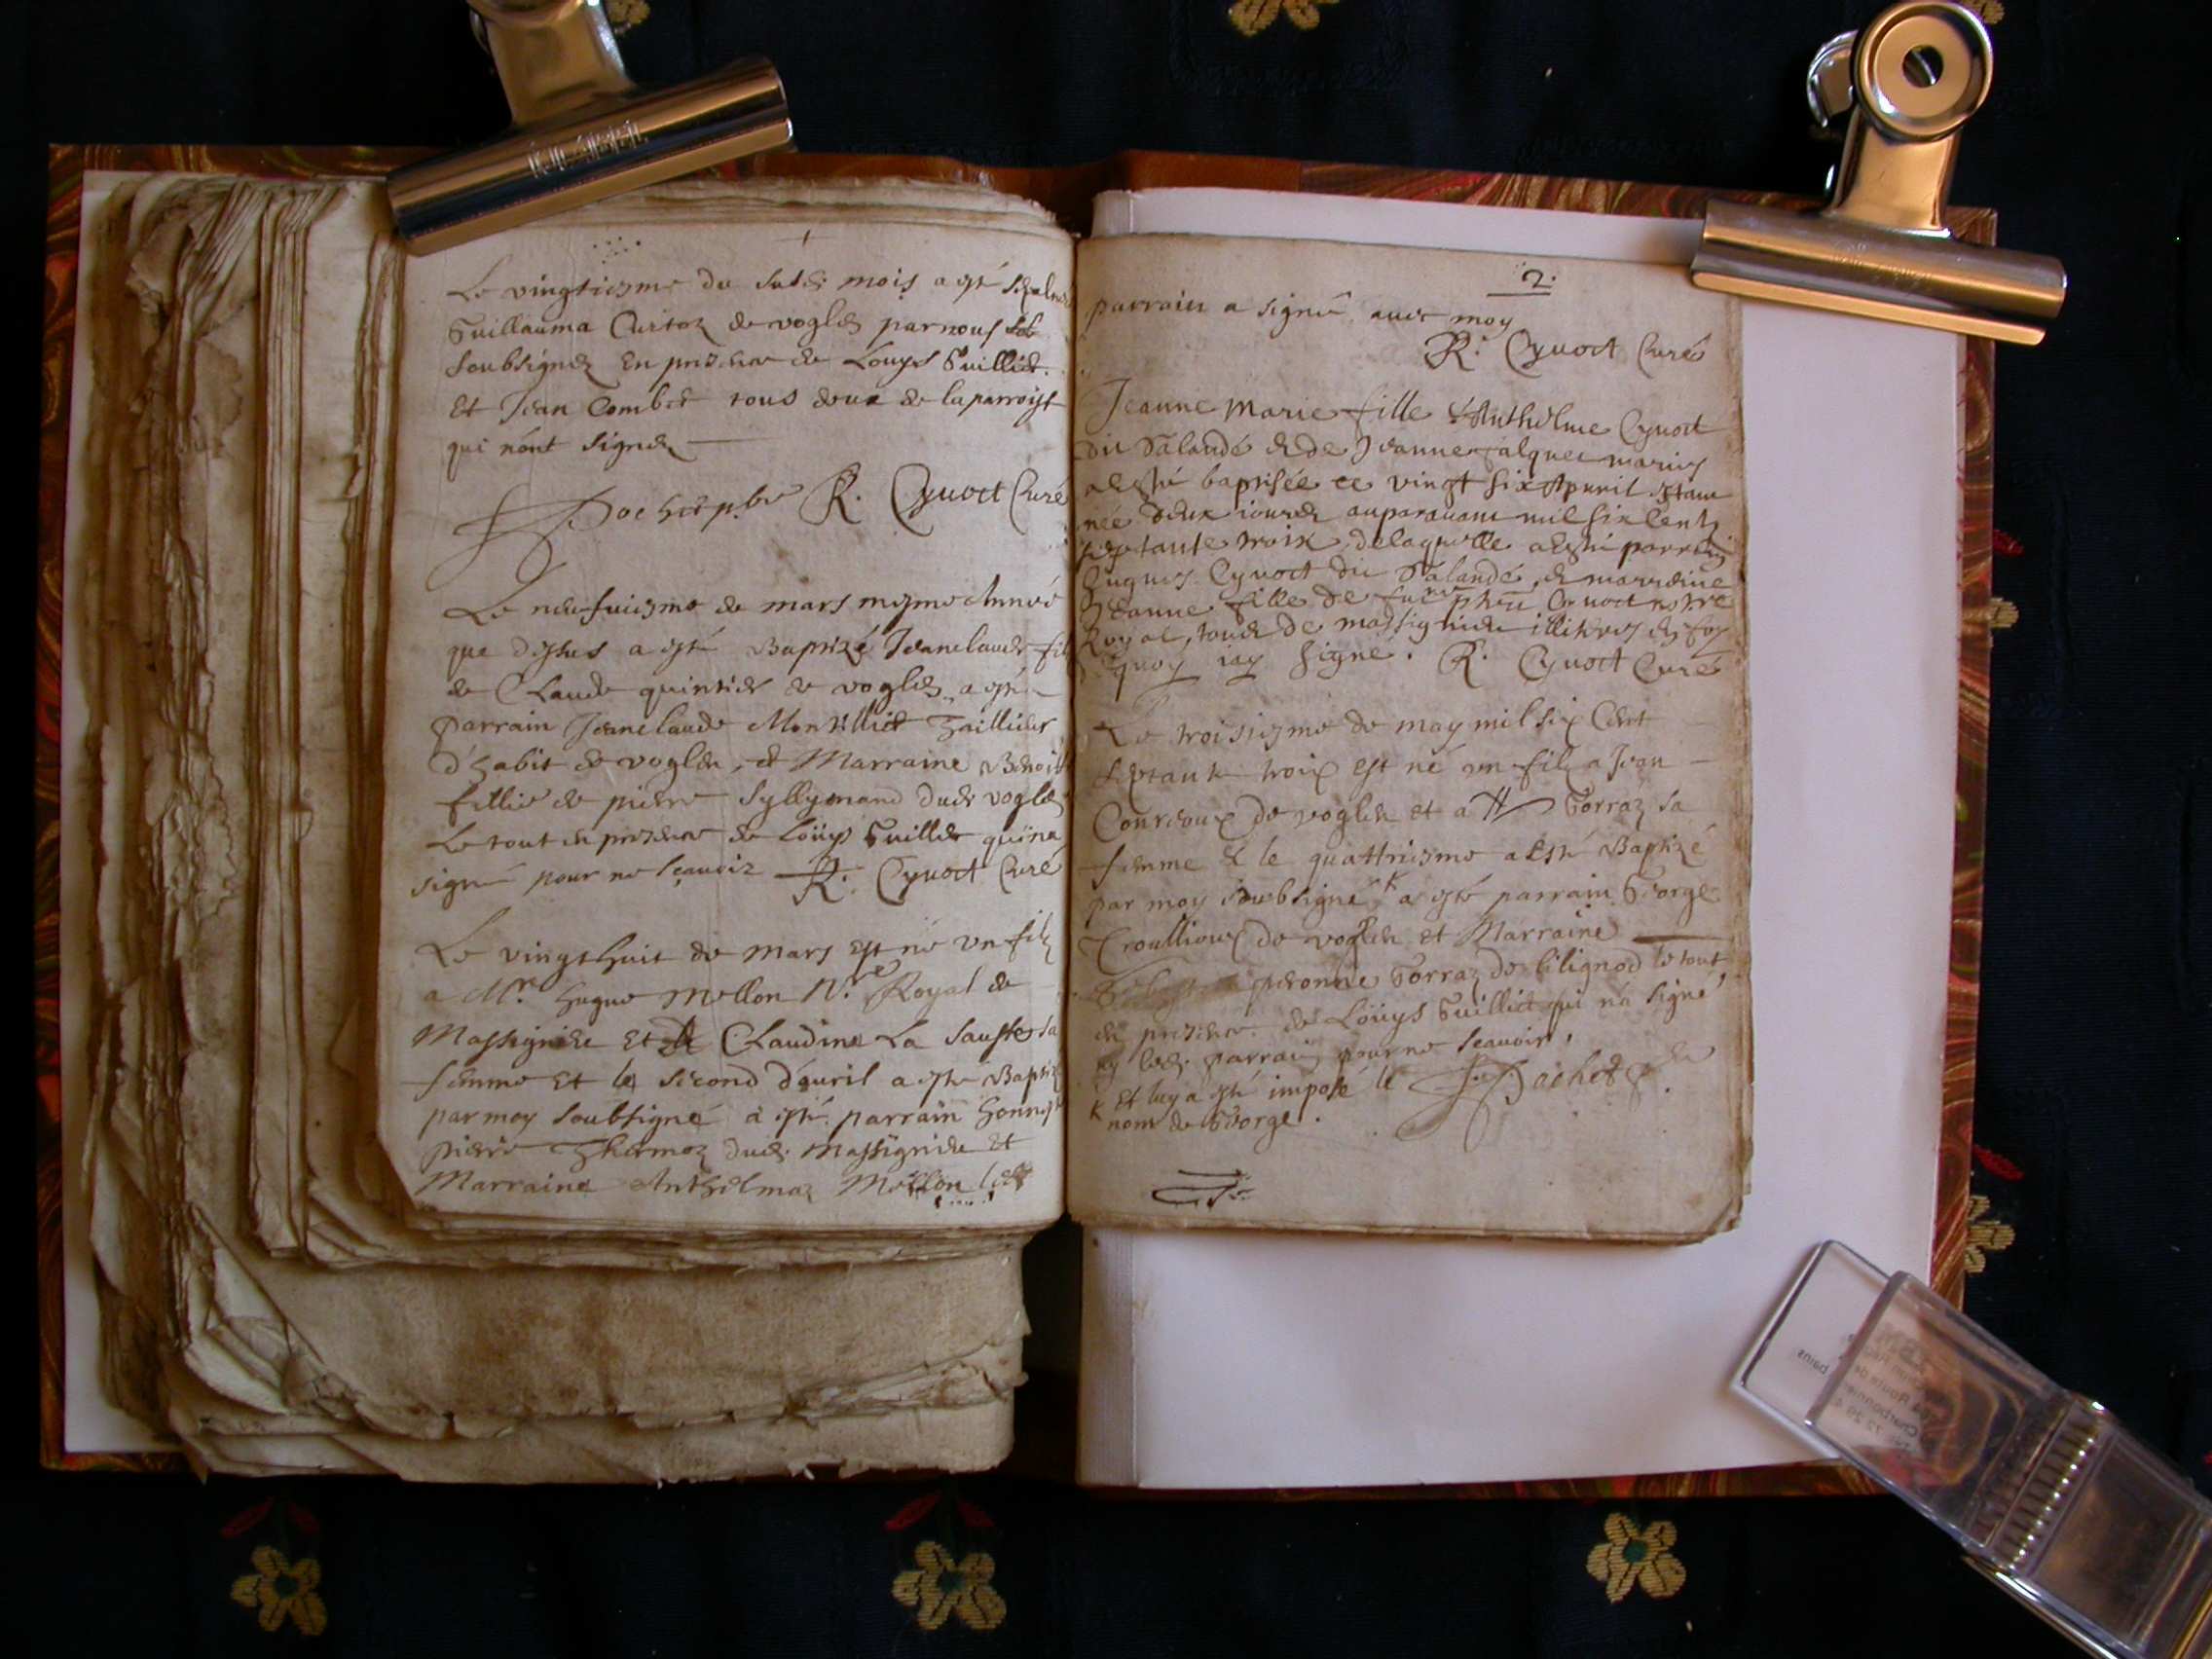 Le vingtiesme du susd. mois a esté
Guillauma Curtoz de voglen par nous
soubsignez en presence de Louys Guilliet
Et Jean Combet tous deux de la parroisse
qui n'ont signez
Dochet pbr R. Cyvoct Curé
Le neufuiesme de mars mesme Année
que dessus a esté Baptizé Jeanclaude fil
de CLaude quintier de voglen, a esté
parrain Jeanclaude Montilliet Tailleur
d'habit de voglen, et Marraine Benoit
fillie de pierre Syllymand dud. voglen
Le tout en presence de Loüys Guilliet qui na
signé pour ne sçavoir R. Cyvoct Curé
Le vingt huit de mars est né vn filz
a Mr. hugue Mellon Nre. Royal de
Massignieu et CLaudine La Sausse sa
femme Et le second d'auril a esté Baptizé
par moy soubsigné a esté parrain honneste
pierre Thermoz dud. Massignieu Et
Marraine Anthelmaz Mellon led
2.
parrain a signé avec moy
R. Cyvoct Curé
Jeanne Marie fille d'Anthelme Cyvoct
dit Dalandé et de Jeanne falquet mariés
a esté baptisée ce vingt six Apvril estant
née deux iours auparavant mil six cents
septante troix, de laquelle a esté parrein
hugues Cyvoct dit Dalandé, et marreine
Jeanne fille de feu Cyvoct notre
Royal, tous de massignieu illiterés en foy
de quoy iay signé. R. Cyvoct Curé
Le troisiesme de may mil six Cent
septante troix est né vn filz a Jean
Courioux de voglen et a Gorraz sa
femme & le quattriesme a esté Baptizé
par moy soubsigné a esté parrain George
Troullioux de voglen et Marraine
peronne Gorraz de bilignod le tout
en presence de Loüys Guilliet qui n'a signé
ny led. parrain pour ne scauoir,
Et luy a esté imposé le Dochet
nom de George.